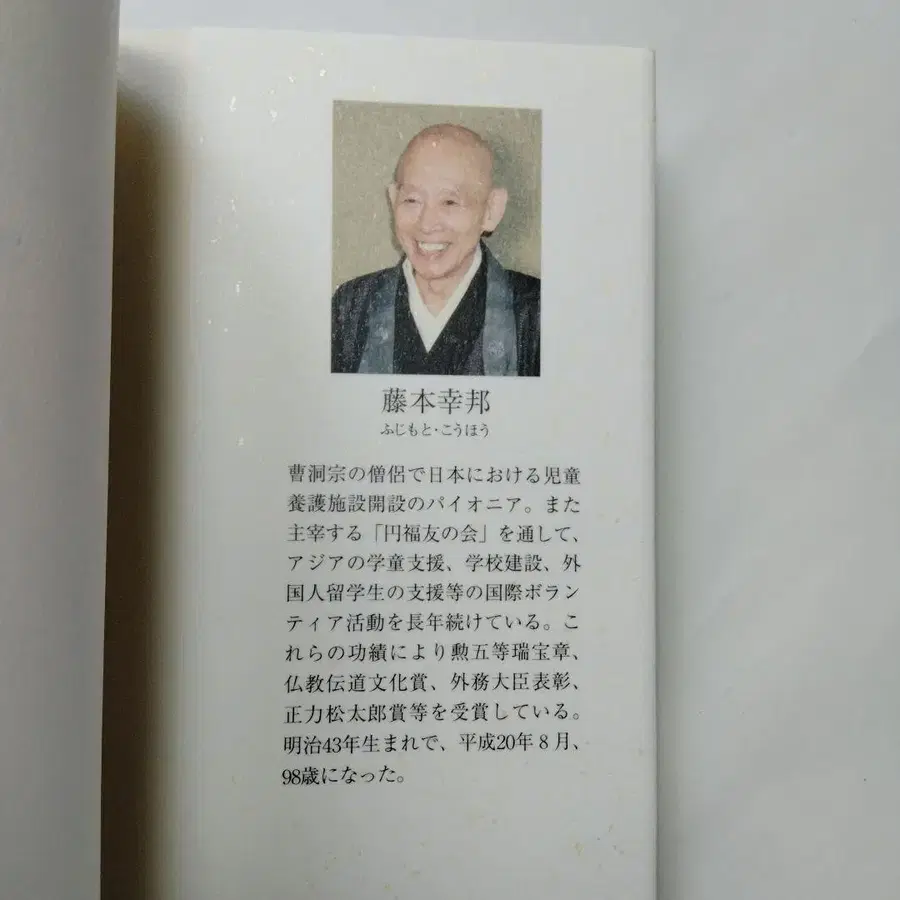 藤本幸邦
ふじもと・こうほう
曹洞宗の僧侶で日本における児童
養護施設開設のパイオニア。また
主宰する「円福友の会」を通して、
アジアの学童支援、学校建設、外
国人留学生の支援等の国際ボラン
ティア活動を長年続けている。こ
れらの功績により勲五等瑞宝章、
仏教伝道文化賞、外務大臣表彰、
正力松太郎賞等を受賞している。
明治43年生まれで、平成20年8月、
98歳になった。